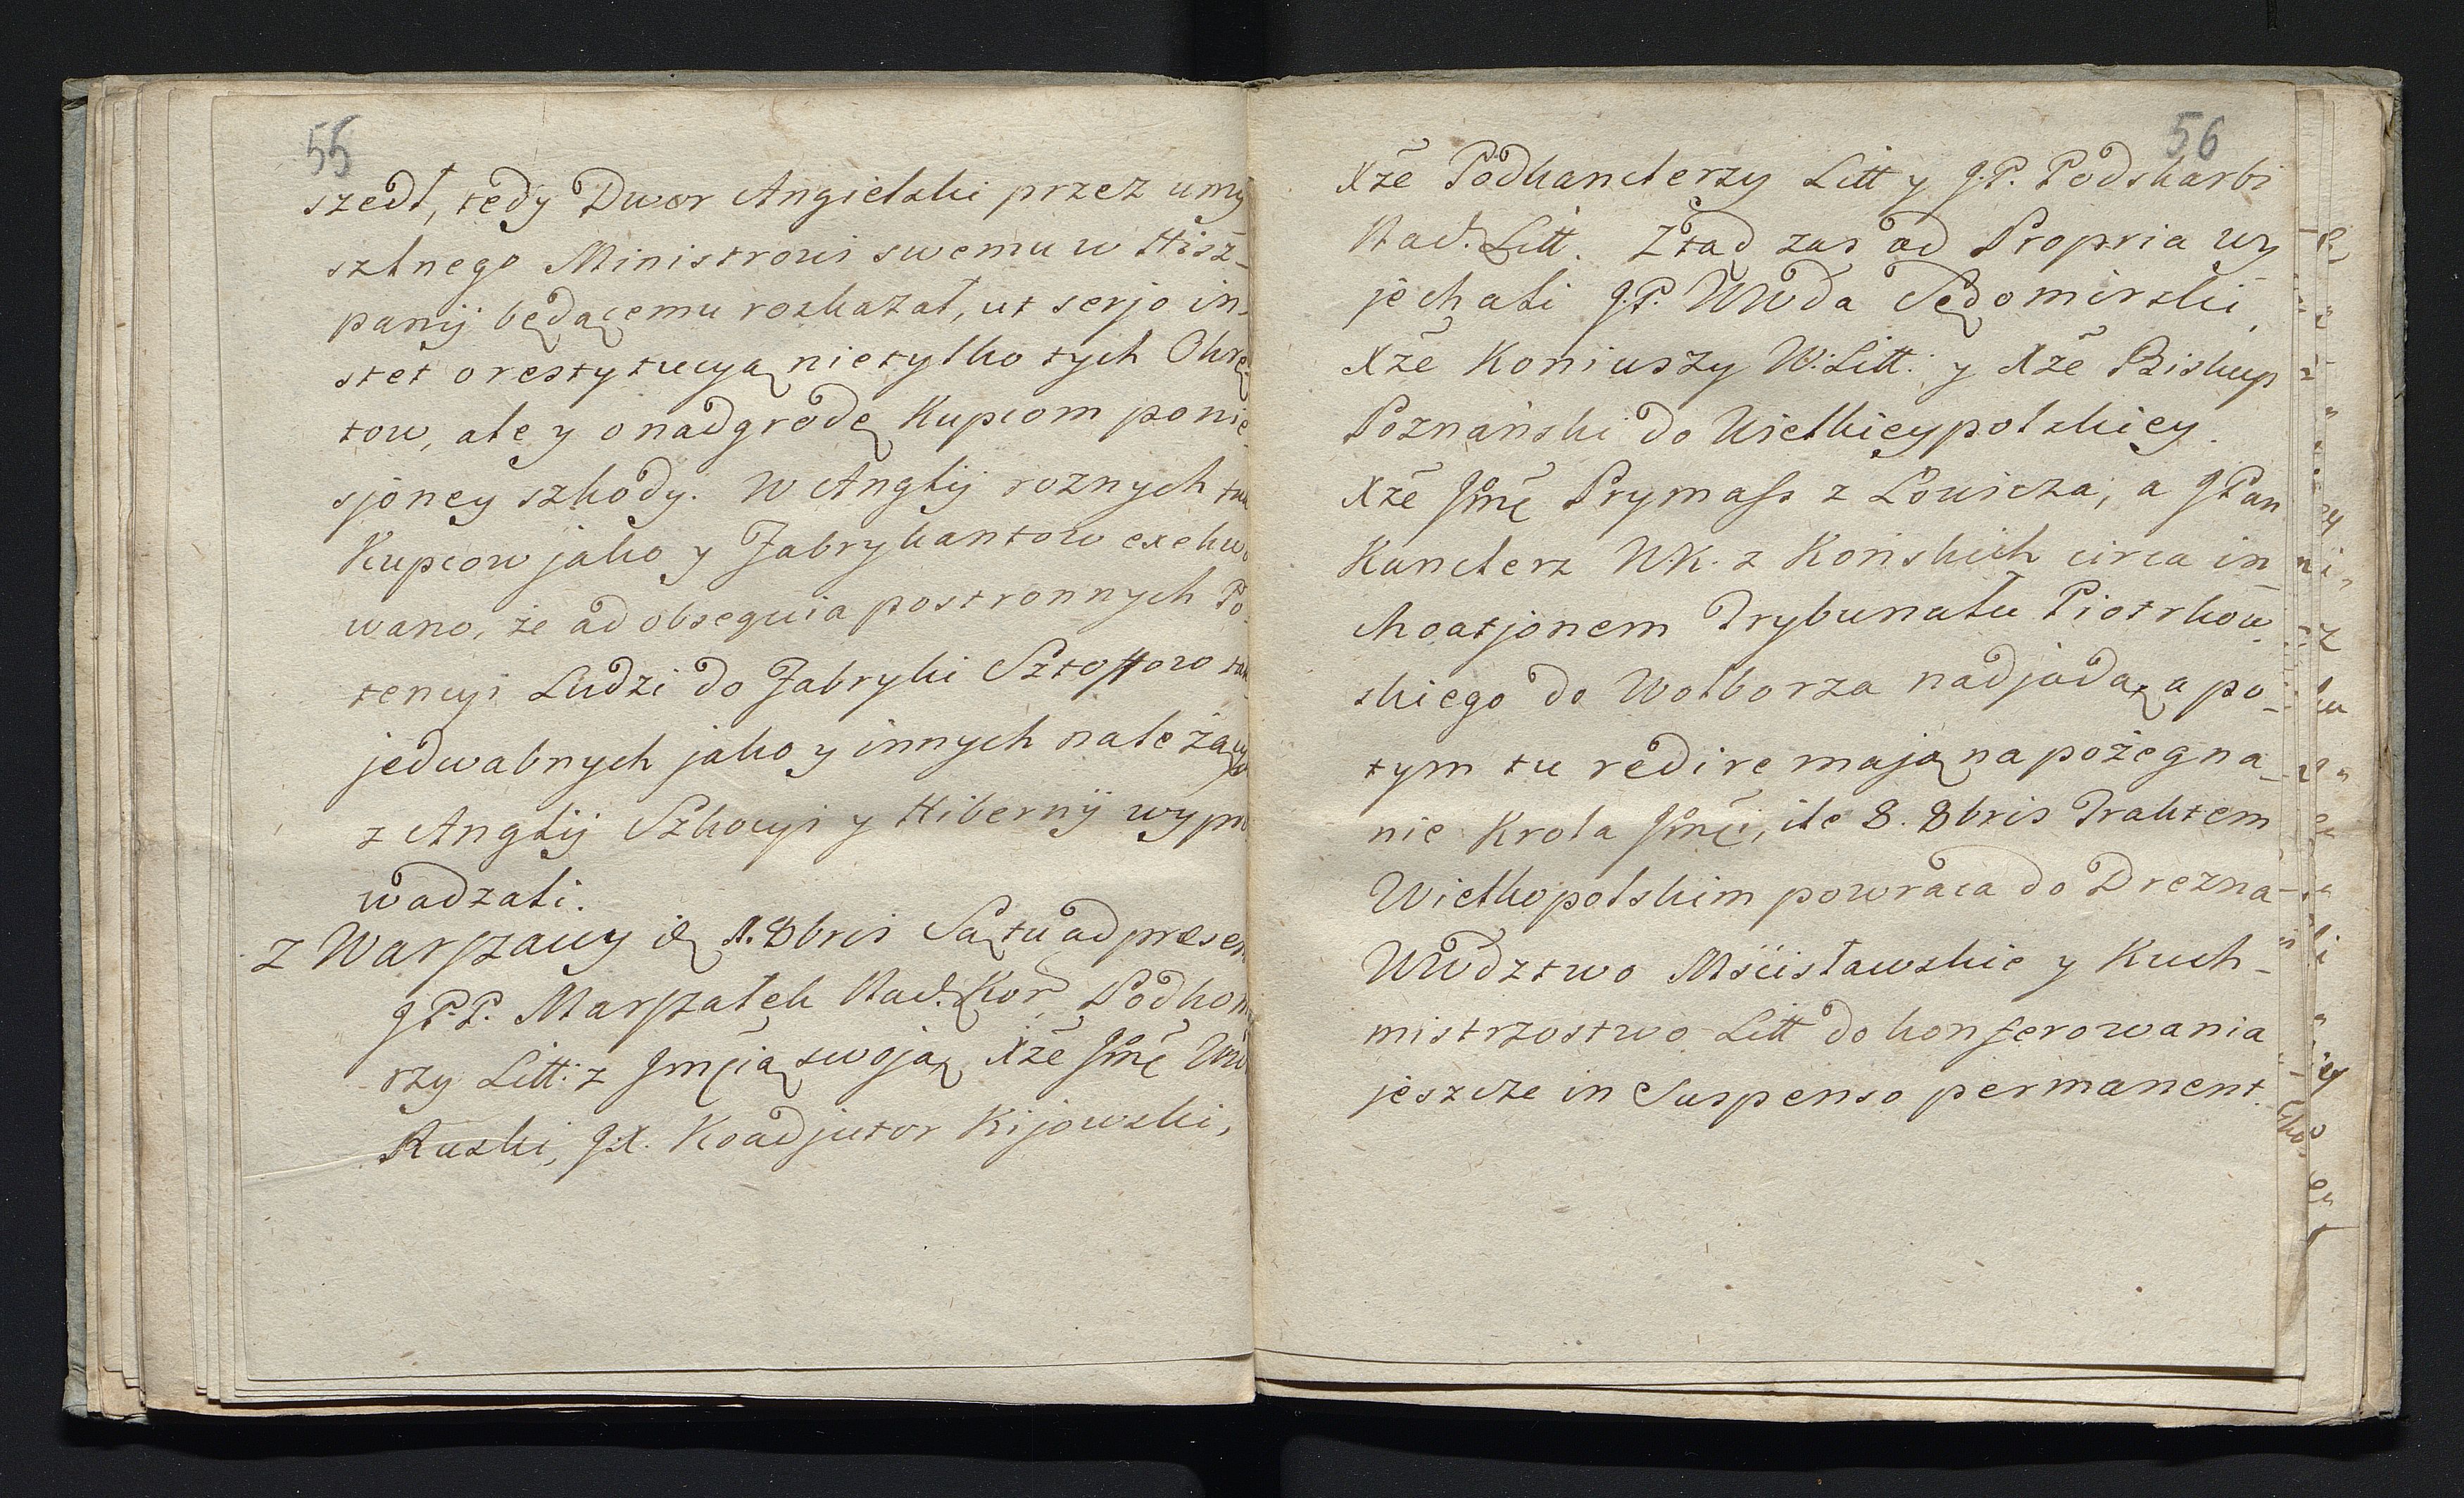 55
szedł, tedy Dwor Angielski przez umy
szlnego Ministrowi swemu w Hisz-
panij będącemu rozkazał, ut serjo in-
stet o restytucyą nietylko tych Okrę
tow, ale y o nadgrodę Kupcom ponie
sjoney szkody. W Anglij roznych tak
Kupcow jako y Fabrykantow exekwo
wano, że ad obsequia postronnych Po-
tencyi Ludzi do Fabryki Sztoffow tak
jedwabnych jako y innych należący
z Anglij Szkocyi y Hibernij wypro
wadzali.
Z Warszawy d. 1. 8bris Są tu ad presen
J.P.P. Marszałek Nad. Kor., Podkom
rzy Litt: z Jmcią swoją, Xże Jmć WW
Ruski, J.X. Koadjutor Kijowski,
56
Xże Podkanclerzy Litt y J.P. Podskarbi
Nad. Litt. Ztąd zas ad Propria wy
jechali J.P. WWda Sędomirski,
Xże Koniuszy W: Litt: y Xże Biskup
Poznański do Wielkieypolskiey.
Xże Jmć Prymass z Łowicza, a JPan
Kanclerz W.K. z Końskich circa in
choatjonem Trybunału Piotrkow
skiego do Wolborza nadjadą, a po-
tym tu redire mają na pożegna-
nie Krola Jmći, ile 8. 8bris Traktem
Wielkopolskim powraca do Drezna-
WWdztwo Mścisławskie y Kuch-
mistrzostwo Litt do konferowania
jeszcze in Suspenso permanent.